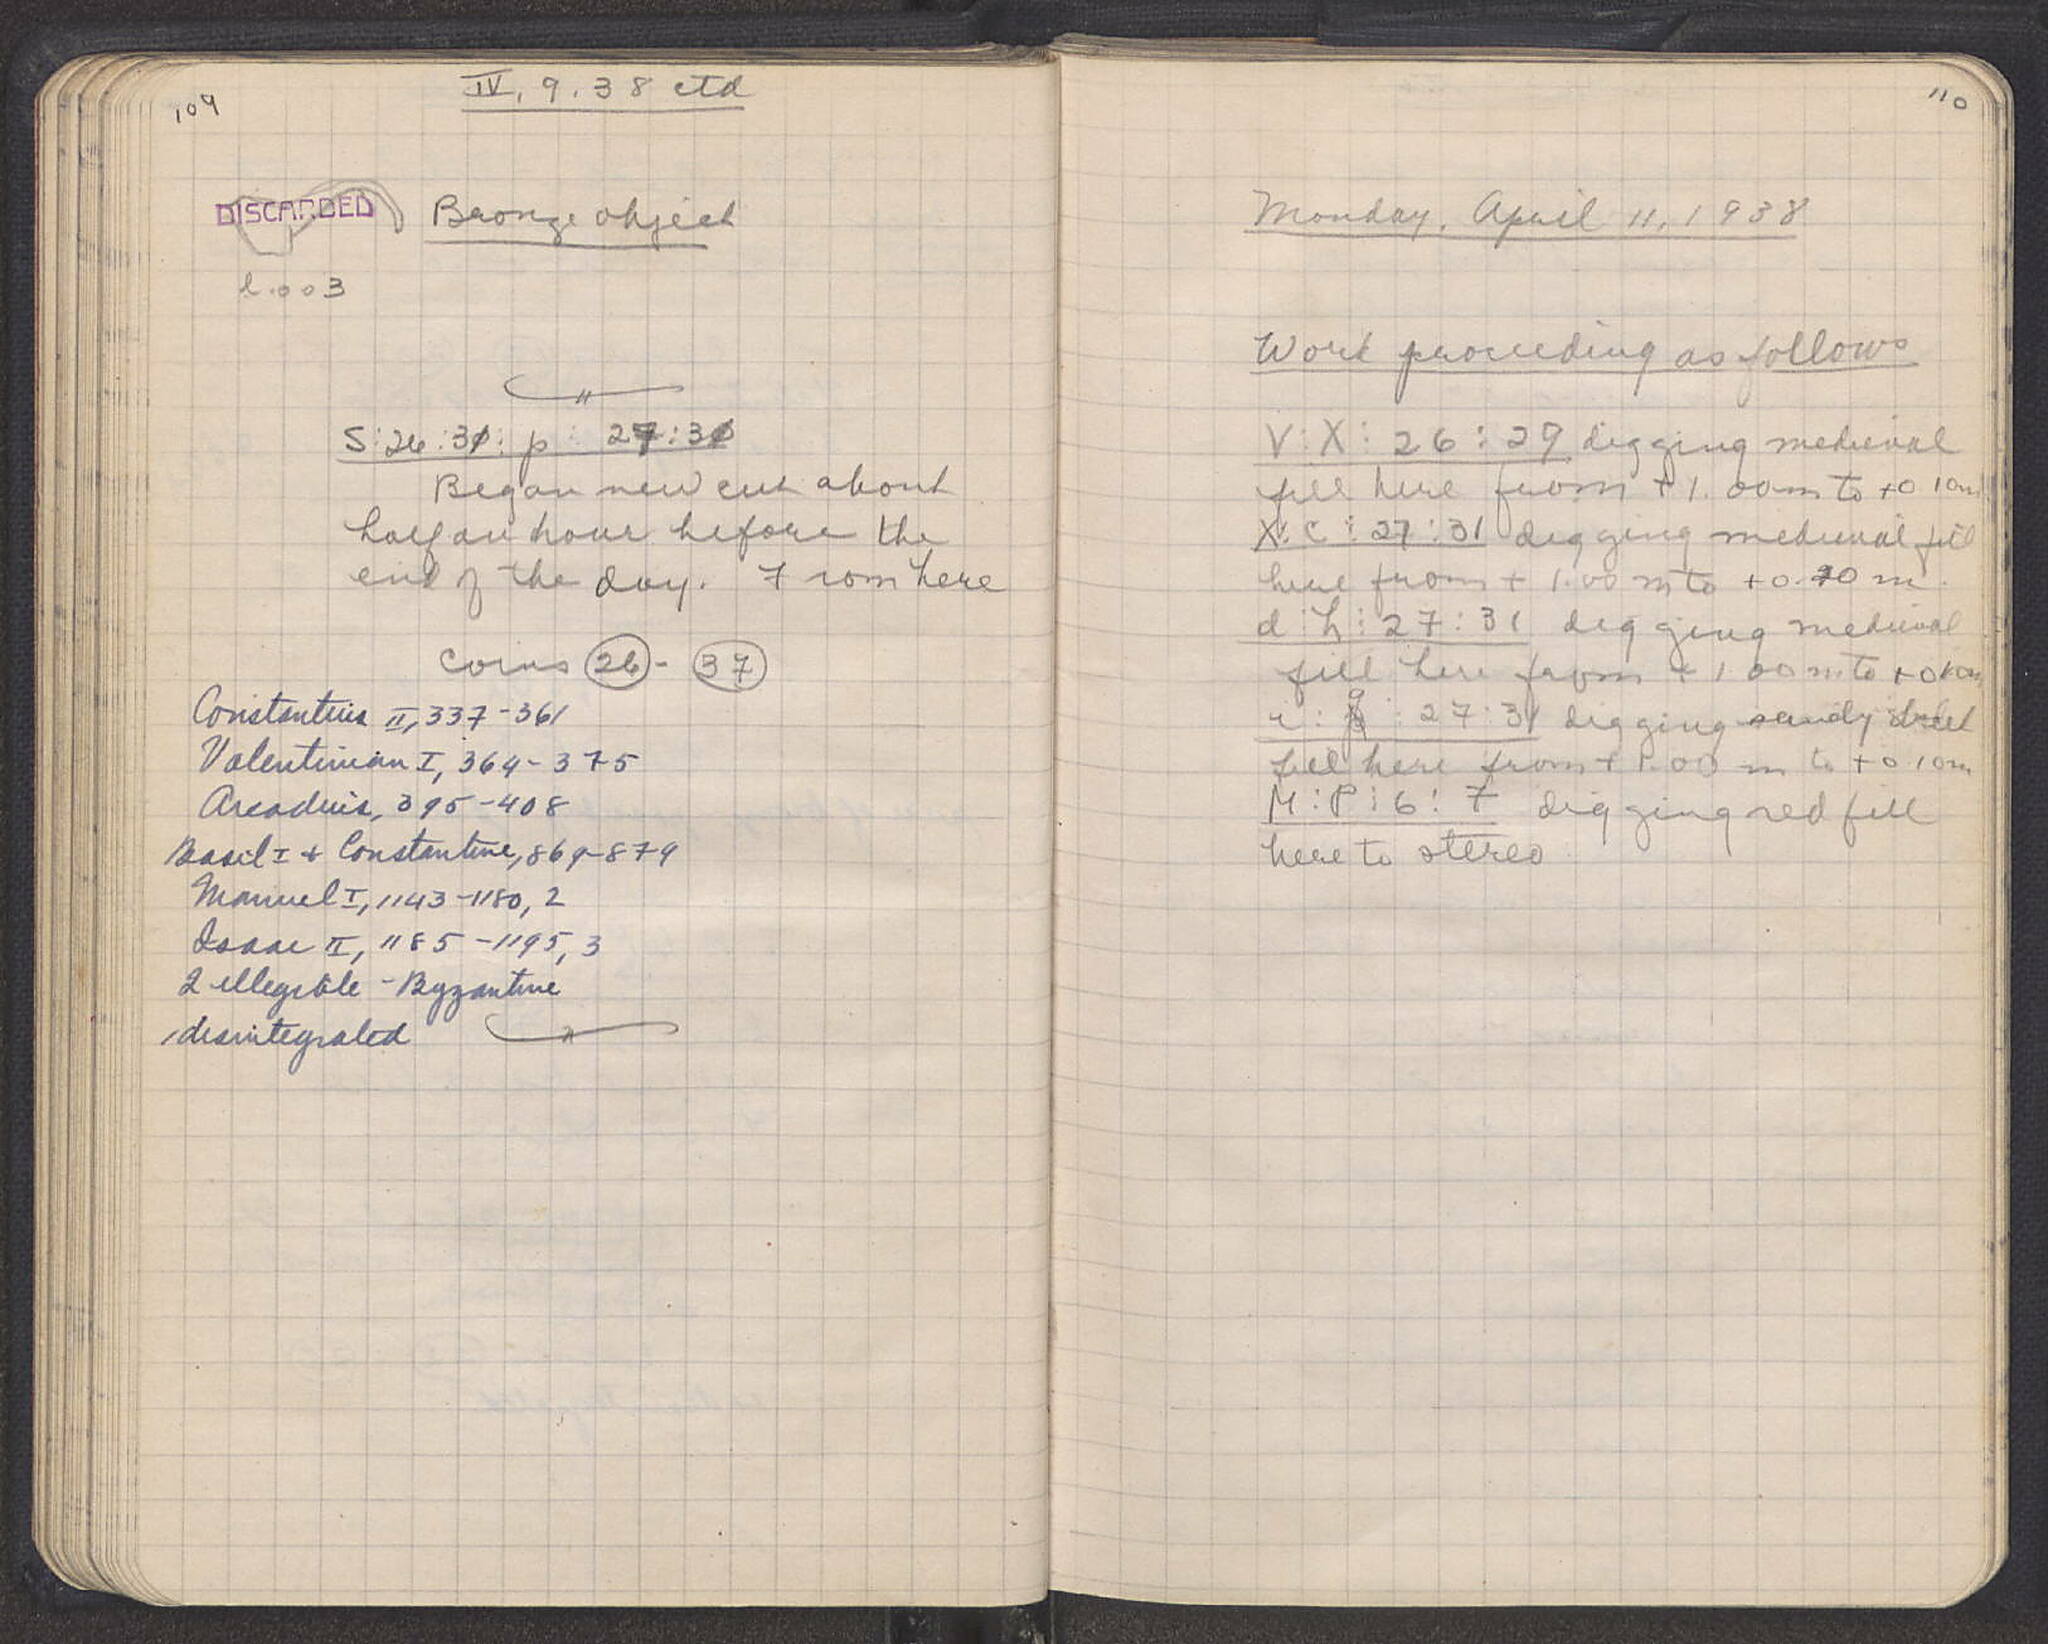 109
IV. 9. 38 ctd
DISCARDED Bronze object
l. 003
S:26:30: p: 27:30
Began new cut about
half an hour before the
end of the day. From here
coins 26 - 37
Constantius II, 337-361
Valentinian I, 364-375
Arcadius, 395-408
Basil I + Constantine, 869-879
Manuel I, 1143-1180, 2
Isaac II, 1185-1195, 3
2 illegible - Byzantine
1 disintegrated
110
Monday, April 11, 1938
Work proceeding as follows
V:X: 26:29 digging medieval
fill here from +1.00m to +0.10m
X:C:27:31 digging medieval fill
here from +1.00m to +0. m.
d:h:27:31 digging medieval
fill here from +1.00m to +0.10m
27:31 digging sandy street
fill here from +1.00 m to +0.10m
M:P:6:7 digging red fill
here to stereo